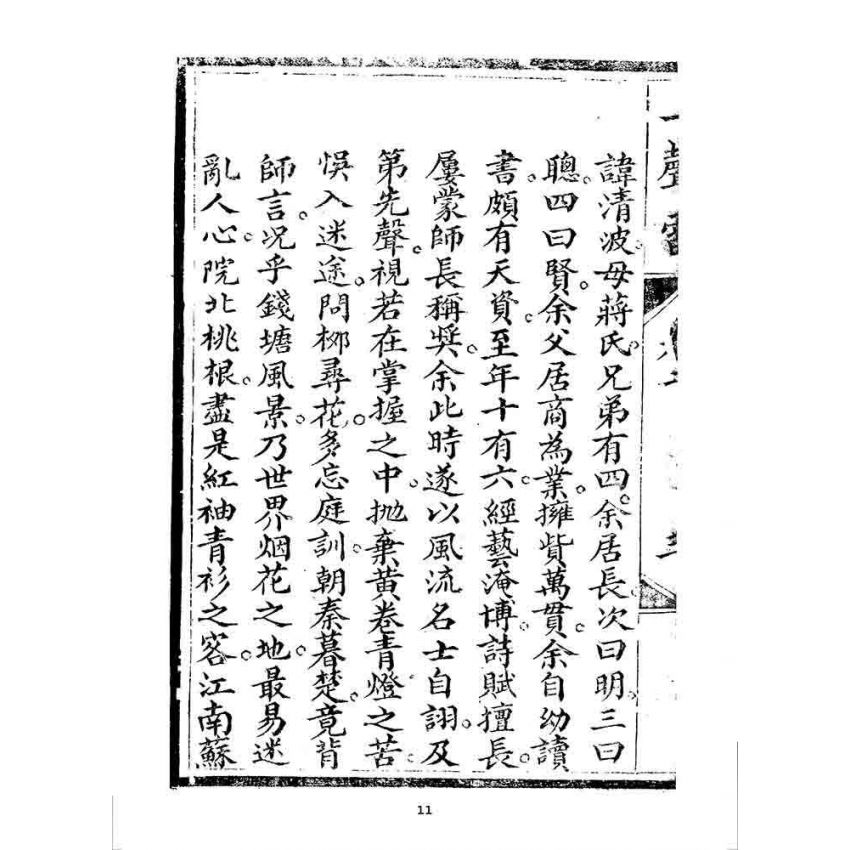 諱清波。母蔣氏。兄弟有四。余居長。次曰明。三曰
聰。四曰賢。余父居商為業。擁貲萬貫。余自幼讀
書。頗有天資。至年十有六。經藝淹博。詩賦擅長。
屢蒙師長稱奬。余此時遂以風流名士自詡。及
第先聲。視若在掌握之中。拋棄黃卷青燈之苦。
悞入迷途。問柳尋花。多忘庭訓。朝秦暮楚。竟背
師言。况乎錢塘風景。乃世界烟花之地。最易迷
亂人心。院北桃根。盡是紅袖青衫之客。江南蘇
11